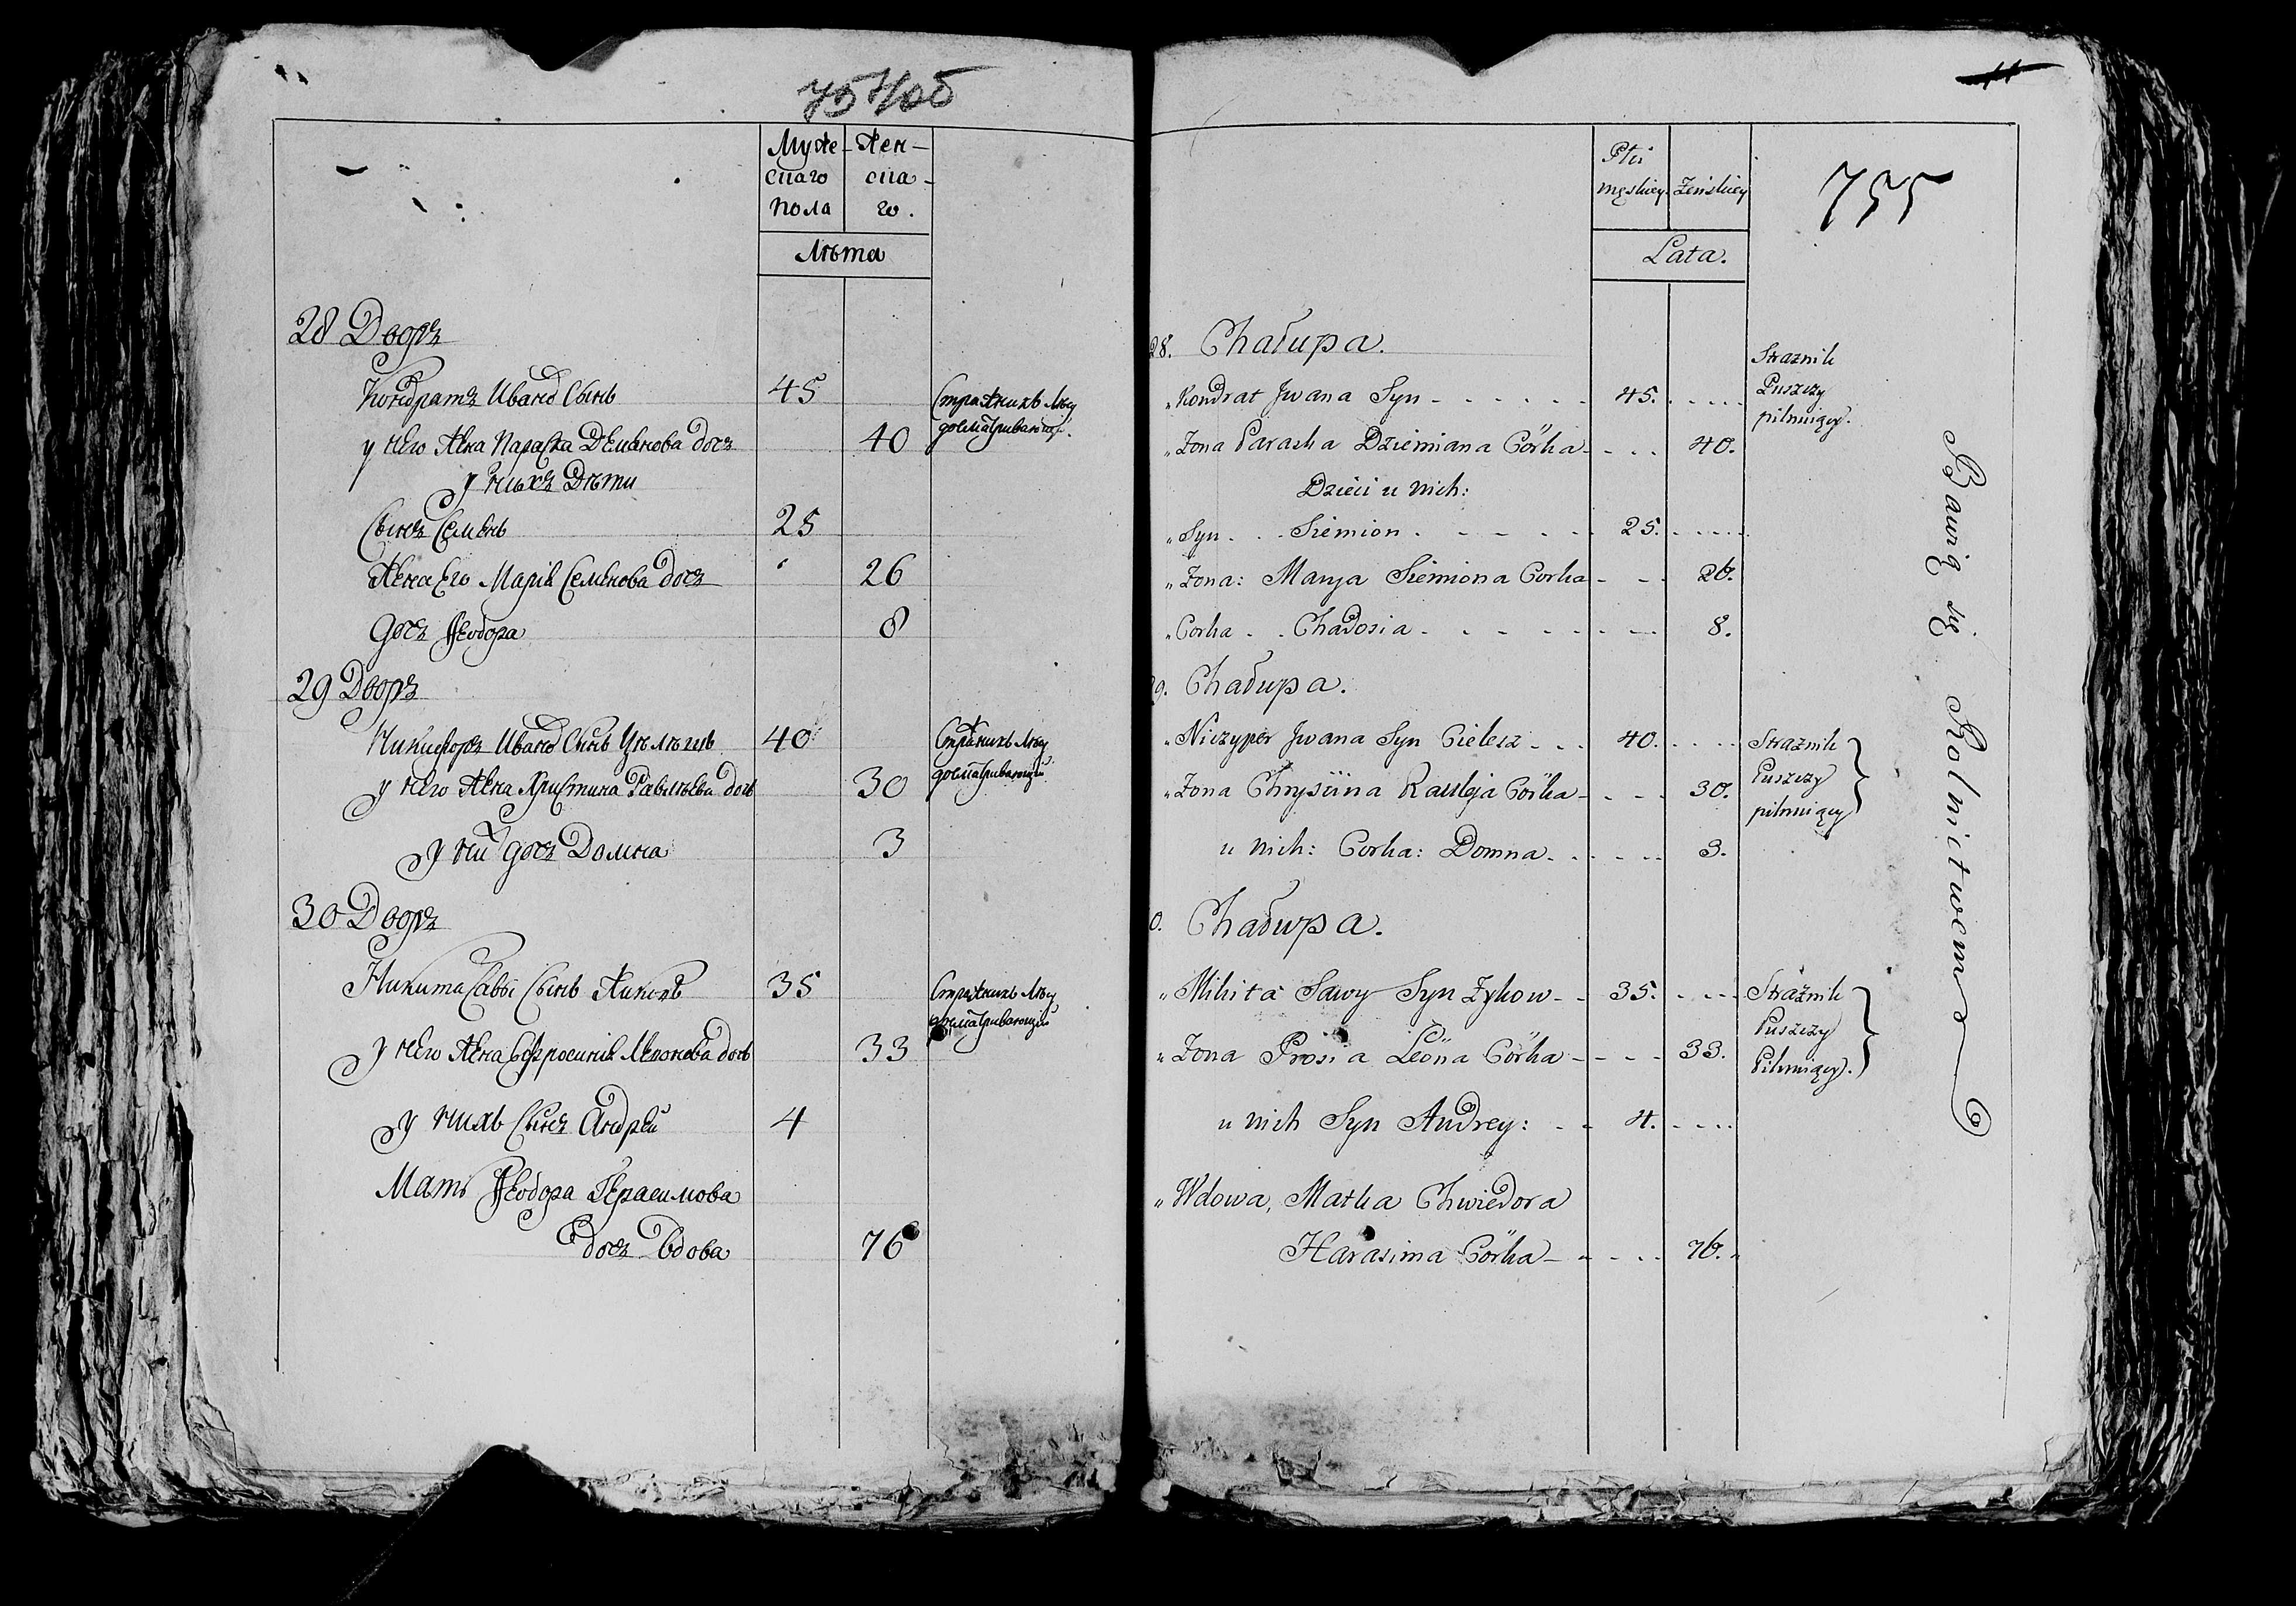 Муже- Жен-
скаго ска-
пола го.
Лѣта
28 Дворъ
Кондратъ Ивановъ Сынъ 45 Стражникъ Лѣсу
досматривающій.
у него Жена Параска Демянова дочь 40
у нихъ Дѣти
Сынъ Семенъ 25
Жена Его Марія Семенова дочь 26
дочь Ѳеодора 8
29 Дворъ
Никифоръ Ивановъ Сынъ Цѣлѣшъ 40 Стражникъ Лѣсу
досматривающій
у него Жена Христина Равлѣева дочь 30
у ни дочь Домна 3
30 Дворъ
Никита Савы Сынъ Жиковъ 35 Стражникъ Лѣсу
досматривающій
у него Жена Ефросинія Леонова дочь 33
у нихъ Сынъ Андрей 4
Мать Ѳеодора Герасимова
дочь Вдова 76
11
Płci
męskiey Żeńskiey
755
Lata.
28. Chałupa.
„ Kondrat Jwana Syn - - - - - 45. . . . . Strażnik
Puszczy
pilnuiący.
„ Żona Paraska Dziemiana Córka - - - 40.
Dzieci u nich:
„ Syn . . . Siemion . - - - - 25. . . . .
„ Żona: Marya Siemiona Corka - - - 26.
„ Corka . . Chadosia - - - - - 8.
9. Chałupa.
„ Niczyper Jwana Syn Cielesz - - . 40. . . . . Strażnik
Puszczy
pilnuiący
„ Żona Chrystina Rauleja Córka - - - - 30.
u nich: Corka: Domna - - - - 3.
0. Chałupa.
„ Mikita Sawy Syn Żykow - - 35. . . . Strażnik
Puszczy
Pilnuiący.
„ Żona Prosia Leona Córka - - - - 33.
u nich Syn Andrey: - - 4. . . . .
„ Wdowa, Matka Chwiedora
Harasima Córka - - - - 76.
Bawią się Rolnictwem